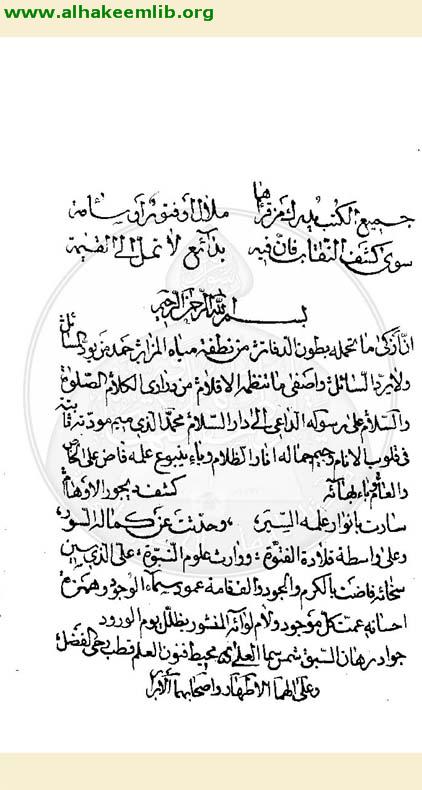 www.alhakeemlib.org
جميع الكتب يدرك من قراها ملال او فتور او سئامة
سوى كشف النقاب فان فيه بدائع لا تمل الى القيمة
بسم الله الرحمن الرحيم
ان ازكى ما تحمله بطون الدفاتر من نطفة مياه المزابر حمد من يود السائل
ولا يرد السائل واصفى ما تنظمه الاقلام من درارى الكلام الصلوة
والسلام على رسوله الداعى الى دار السلام محمد الذى ميم مودته ثابتة
فى قلوب الانام وجيم جماله انار الظلام وياء ينبوع علمه فاض على الخاص
والعام وباء بهائه كشف بحور الاوهام
سارت بانوار علمه السير وحدثت عن كماله السور
وعلى واسطة قلادة الفتوة ووارث علوم النبوة على الذى سين
سخائه فاضت بالكرم والجود والفقامة عمود سماء الوجود وهمزة
احسانه عمت كل موجود ولام لوائه المنشور يظلل يوم الورود
جواد رهان السبق شمس سما العلى محيط فنون العلم قطب رحى الفضل
وعلى الهما الاطهار واصحابهما الابرار